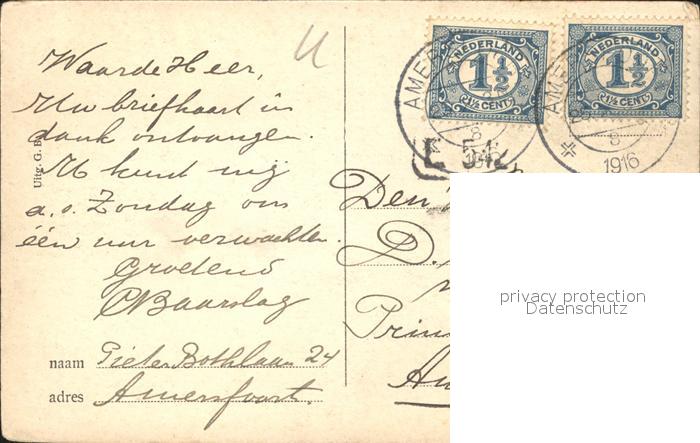 Waarde Heer,
Uw briefkaart in
dank ontvangen.
U kunt mij
a.s. Zondag om
één uur verwachten.
Groetend
CBaarslag
naam Pieter Bothlaan 24
adres Amersfoort.
Uitg. G. B
U
NEDERLAND
1½
1½ CENT
NEDERLAND
1½
1½ CENT
AME
AME
8
8
1916
E 542
Den
D.
Prin
Am
privacy protection
Datenschutz